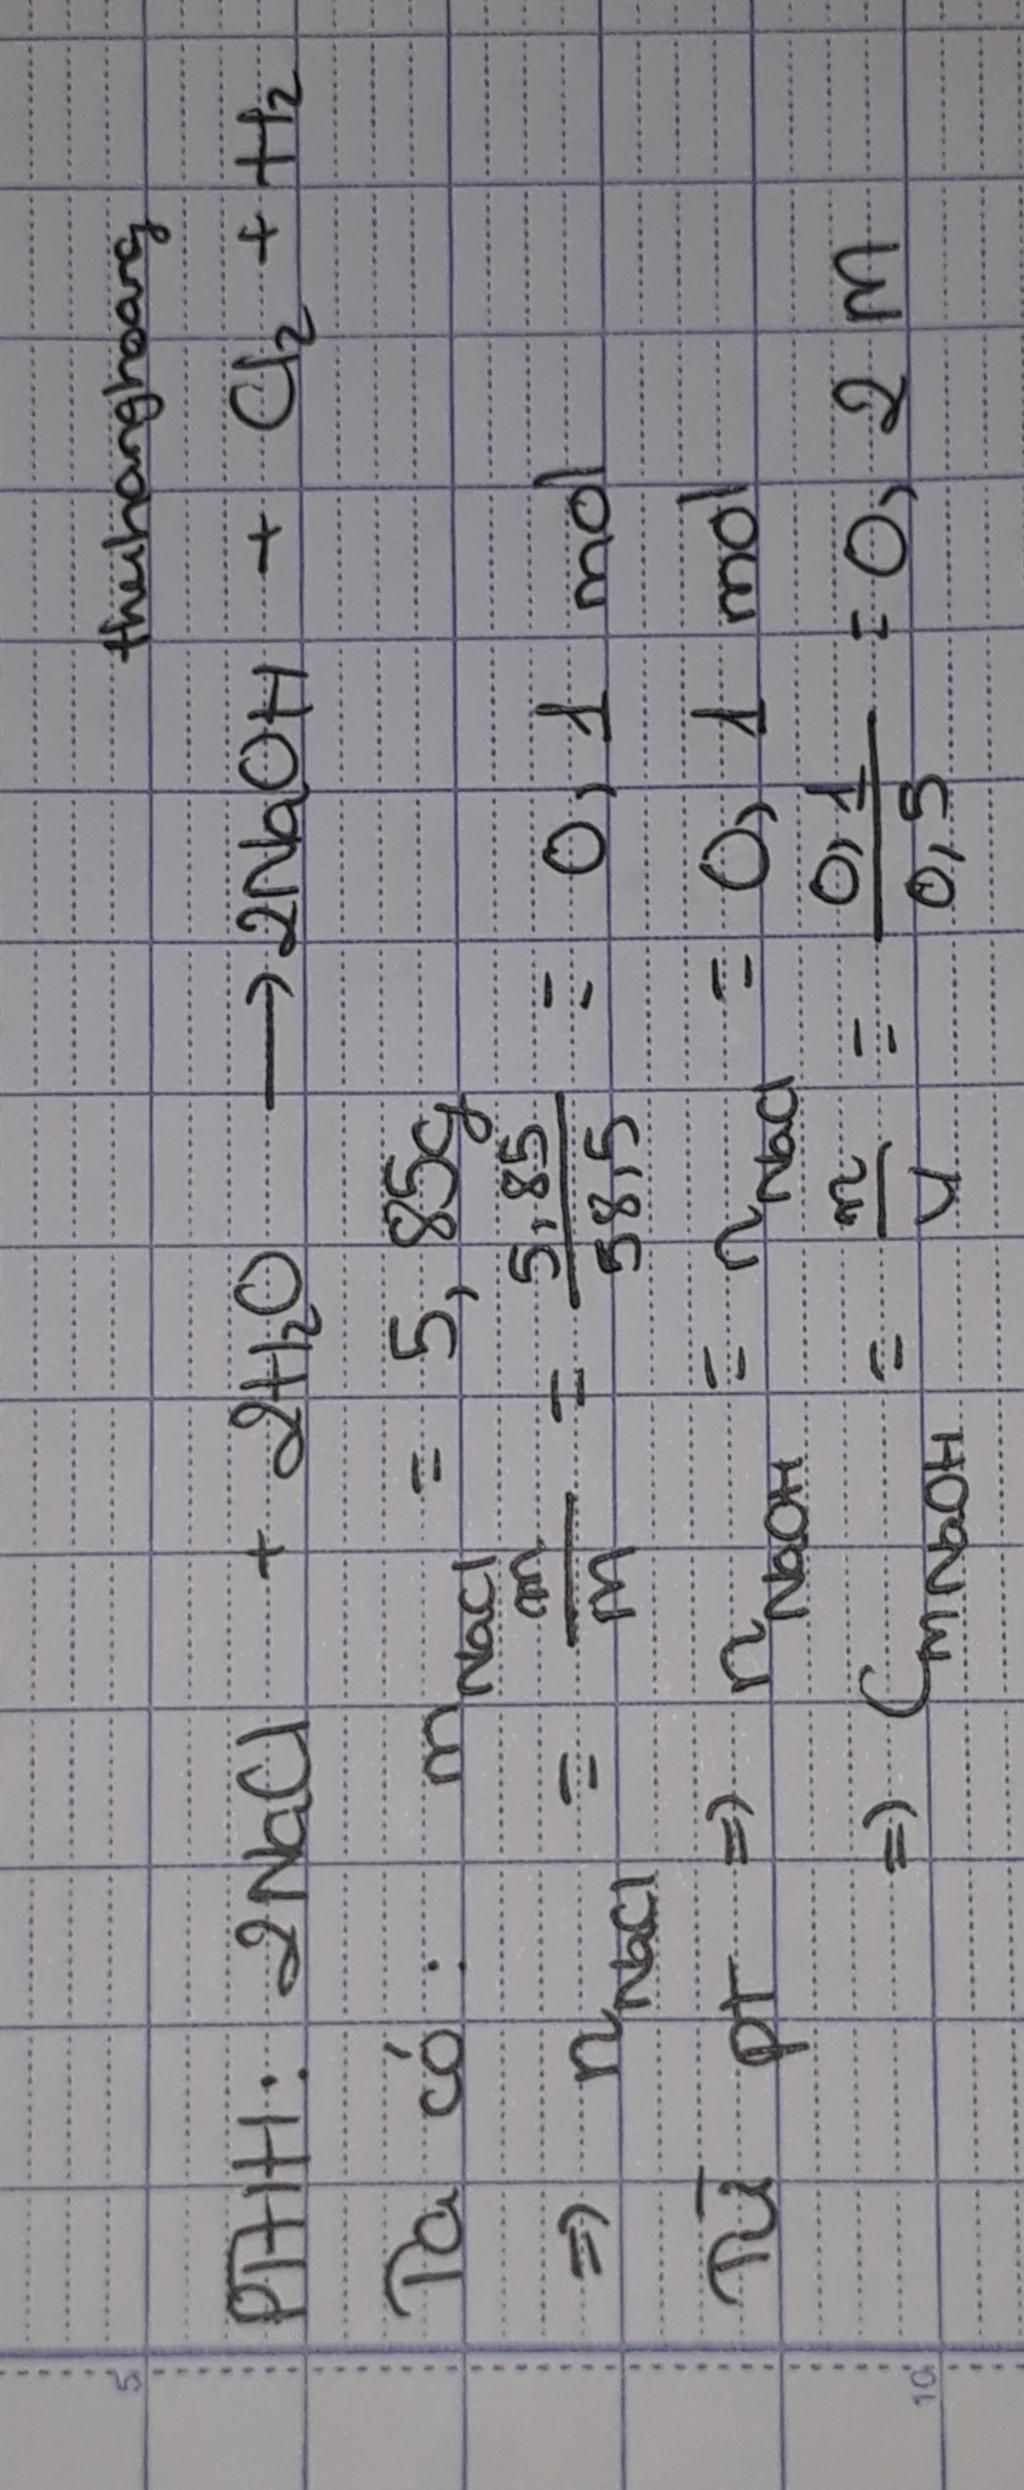 thuphuongfsharg
PTHH: 2NaCl + 2H₂O → 2NaOH + Cl₂ + H₂
Ta có: m_NaCl = 5,85g
=> n_NaCl = m/M = 5,85/58,5 = 0,1 mol
Từ pT => n_NaOH = n_NaCl = 0,1 mol
=> C_M NaOH = n/V = 0,1/0,5 = 0,2 M
5
10